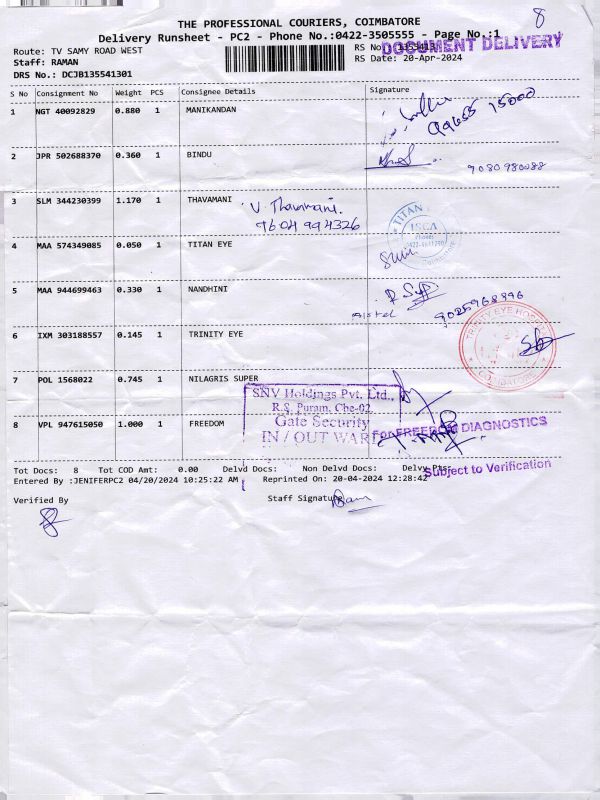 THE PROFESSIONAL COURIERS, COIMBATORE
8
Delivery Runsheet - PC2 - Phone No.:0422-3505555 - Page No.:1
DOCUMENT DELIVERY
Route: TV SAMY ROAD WEST
RS No
Staff: RAMAN
RS Date: 20-Apr-2024
DRS No.: DCJB135541301
S No Consignment No Weight PCS Consignee Details Signature
1 NGT 40092829 0.880 1 MANIKANDAN
99655 15000
2 JPR 502688370 0.360 1 BINDU
9080980088
3 SLM 344230399 1.170 1 THAVAMANI V Thavamani.
TITAN
ISCA
4 MAA 574349085 0.050 1 TITAN EYE
5 MAA 944699463 0.330 1 NANDHINI
9025968996
6 IXM 303188557 0.145 1 TRINITY EYE
TRINITY EYE
7 POL 1568022 0.745 1 NILAGRIS SUPER
SNV Holdings Pvt. Ltd.,
R.S. Puram, Cbe-02.
8 VPL 947615050 1.000 1 FREEDOM
Gate Security
For FREEDOM DIAGNOSTICS
IN / OUT WAR
Tot Docs: 8 Tot COD Amt: 0.00 Delvd Docs: Non Delvd Docs: Delvy Pts:
Subject to Verification
Entered By :JENIFERPC2 04/20/2024 10:25:22 AM Reprinted On: 20-04-2024 12:28:42
Verified By
Staff Signature